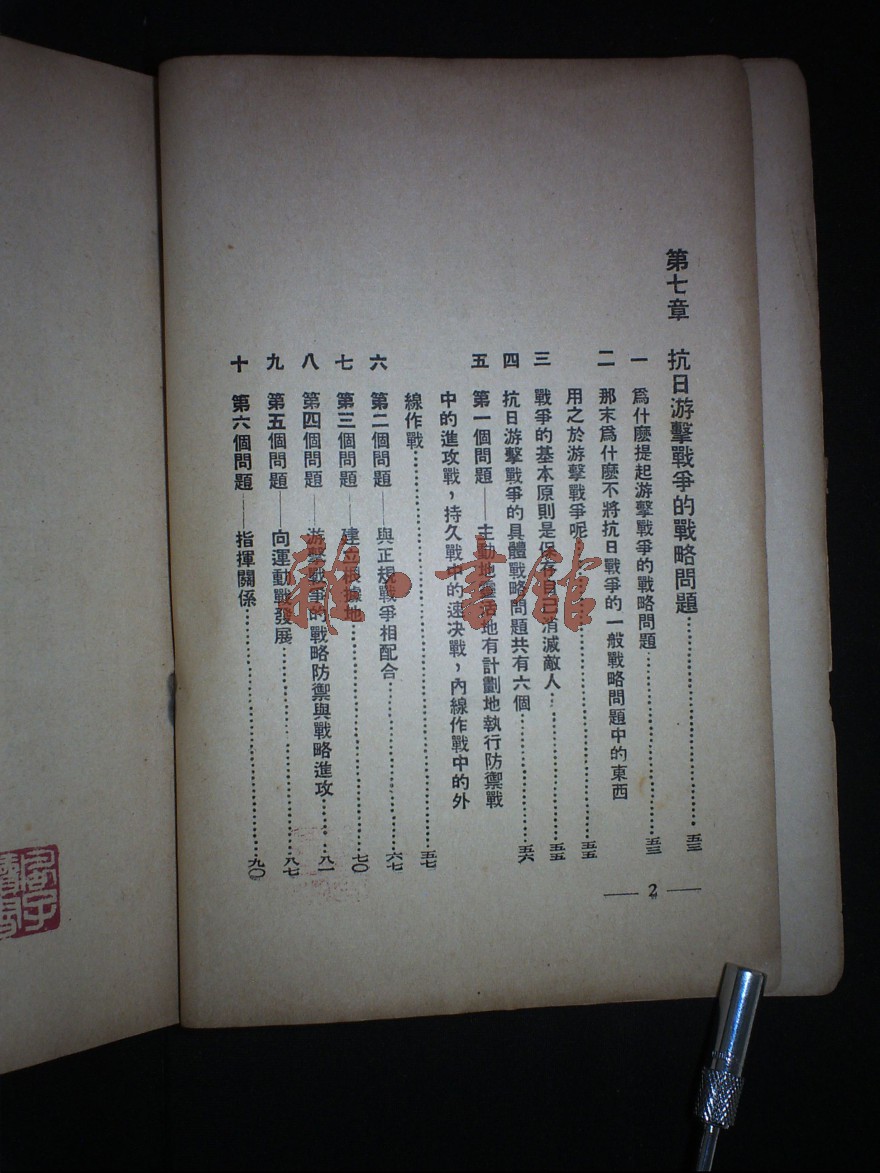 第七章　抗日游擊戰爭的戰略問題……五三
一　爲什麽提起游擊戰爭的戰略問題……五三
二　那末爲什麽不將抗日戰爭的一般戰略問題中的東西
用之於游擊戰爭呢……五五
三　戰爭的基本原則是保存自己消滅敵人……五五
四　抗日游擊戰爭的具體戰略問題共有六個……五六
五　第一個問題——主動地靈活地有計劃地執行防禦戰
中的進攻戰，持久戰中的速决戰，內線作戰中的外
線作戰……五七
六　第二個問題——與正規戰爭相配合……六七
七　第三個問題——建立根據地……七〇
八　第四個問題——游擊戰爭的戰略防禦與戰略進攻……八一
九　第五個問題——向運動戰發展……八七
十　第六個問題——指揮關係……九〇
— 2 —
雜·書館